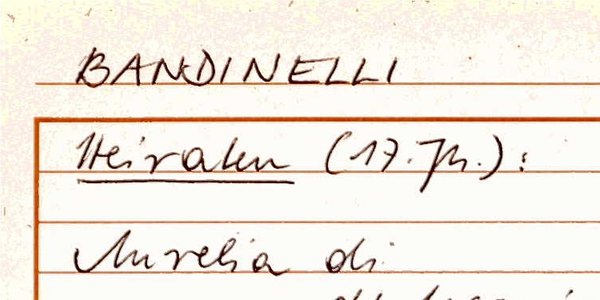 BANDINELLI
Heiraten (17. Jh.):
Aurelia di